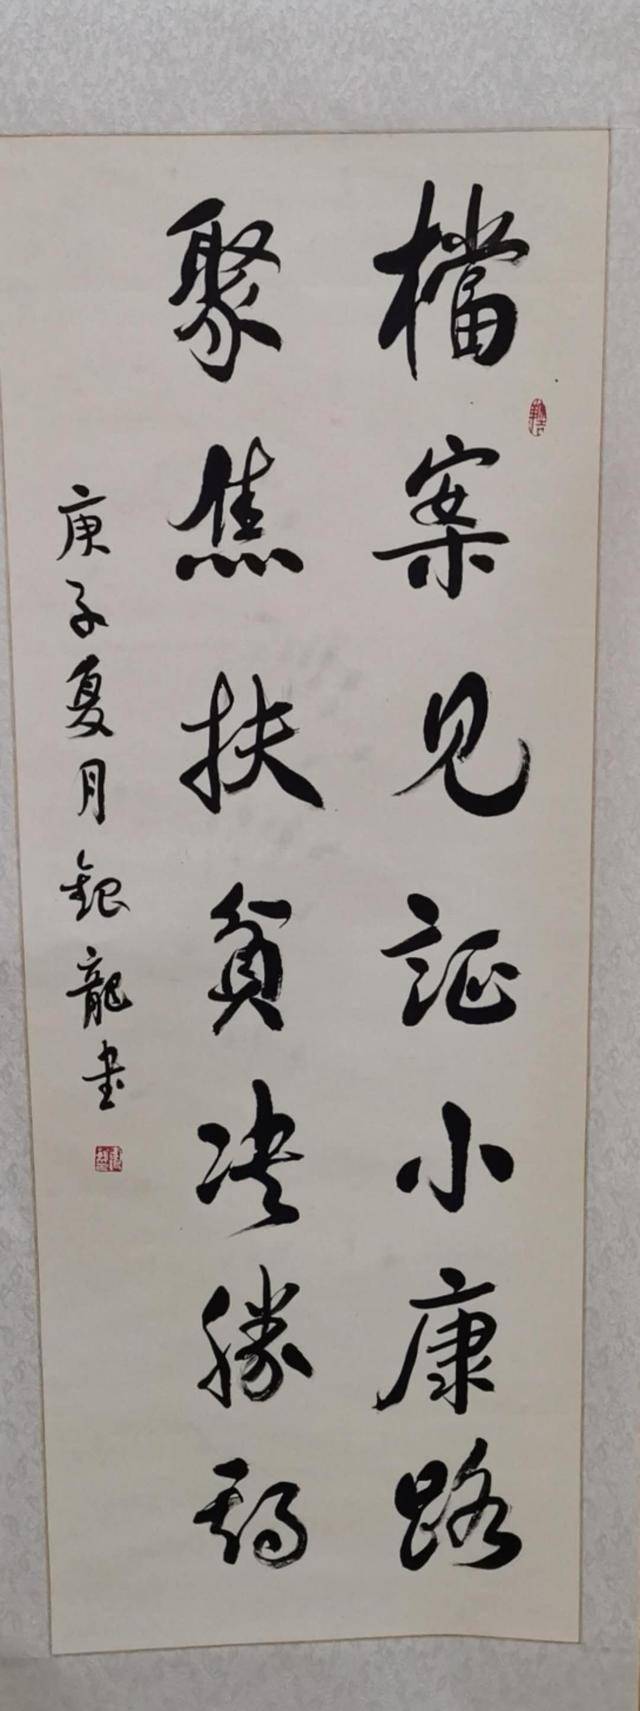 檔案见証小康路
聚焦扶貧决勝期
庚子夏月銀龍書